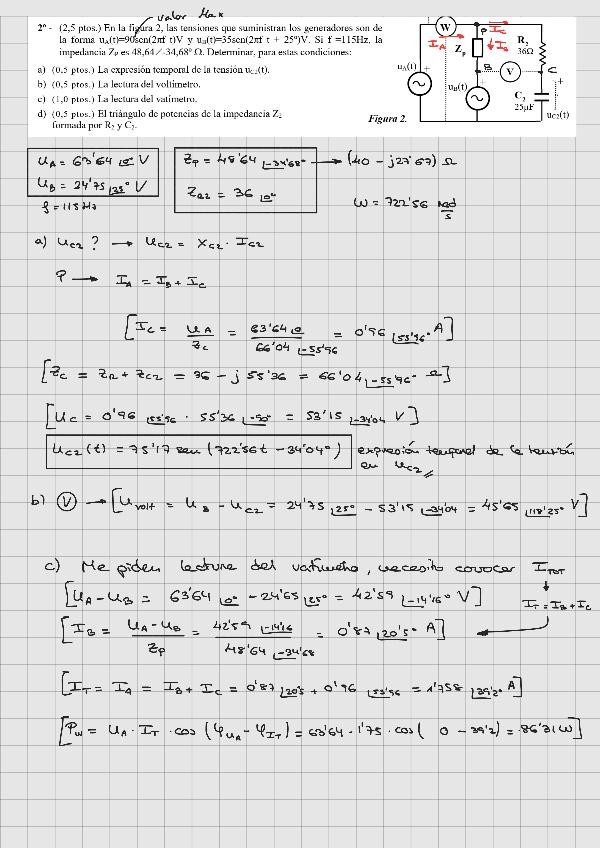 valor Max
2º - (2,5 ptos.) En la figura 2, las tensiones que suministran los generadores son de
la forma uA(t)=90sen(2πf t)V y uB(t)=35sen(2πf t + 25º)V. Si f =115Hz, la
impedancia ZP es 48,64∠-34,68º Ω. Determinar, para estas condiciones:
a) (0,5 ptos.) La expresión temporal de la tensión uC2(t).
b) (0,5 ptos.) La lectura del voltímetro.
c) (1,0 ptos.) La lectura del vatímetro.
d) (0,5 ptos.) El triángulo de potencias de la impedancia Z2
formada por R2 y C2.
Figura 2.
W
P
IC
IA
ZP
IB
R2
36Ω
B
V
C
uA(t)
uB(t)
C2
25µF
uC2(t)
UA = 63'64 |0° V
UB = 24'75 |25° V
f = 115 Hz
ZP = 48'64 |-34'68° → (40 - j27'67) Ω
ZR2 = 36 |0°
W = 722'56 rad/s
a) UC2 ? → UC2 = XC2 · IC2
P → IA = IB + IC
[IC = UA/ZC = 63'64 |0/66'04 |-55'96 = 0'96 |55'96° A]
[ZC = ZR + ZC2 = 36 - j 55'36 = 66'04 |-55'96° Ω]
[UC = 0'96 |55'96 · 55'36 |-90° = 53'15 |-34'04 V]
UC2 (t) = 75'17 sen (722'56t - 34'04°) expresión temporal de la tensión
en UC2
b) V → [Uvolt = UB - UC2 = 24'75 |25° - 53'15 |-34'04 = 45'65 |118'25° V]
c) Me piden lectura del vatímetro, necesito conocer ITOT
[UA - UB = 63'64 |0° - 24'65 |25° = 42'59 |-14'16° V]
IT = IB + IC
[IB = UA - UB/ZP = 42'59 |-14'16/48'64 |-34'68 = 0'87 |20'5° A]
[IT = IA = IB + IC = 0'87 |20'5 + 0'96 |55'96 = 1'758 |39'2° A]
[PW = UA · IT · cos (φUA - φIT) = 63'64 · 1'75 · cos ( 0 - 39'2) = 86'31 W]